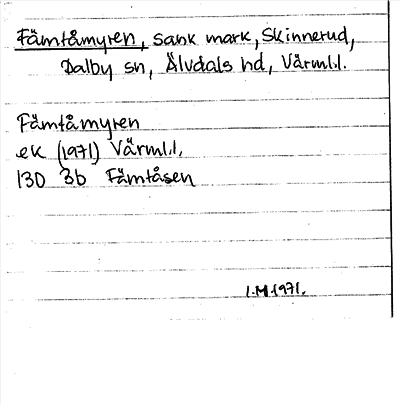 Fämtåmyren, sank mark, Skinnerud,
Dalby sn, Älvdals hd, Värml.l.
Fämtåmyren
ek (1971) Värml.l.
13D 3b Fämtåsen
I.M 1971.